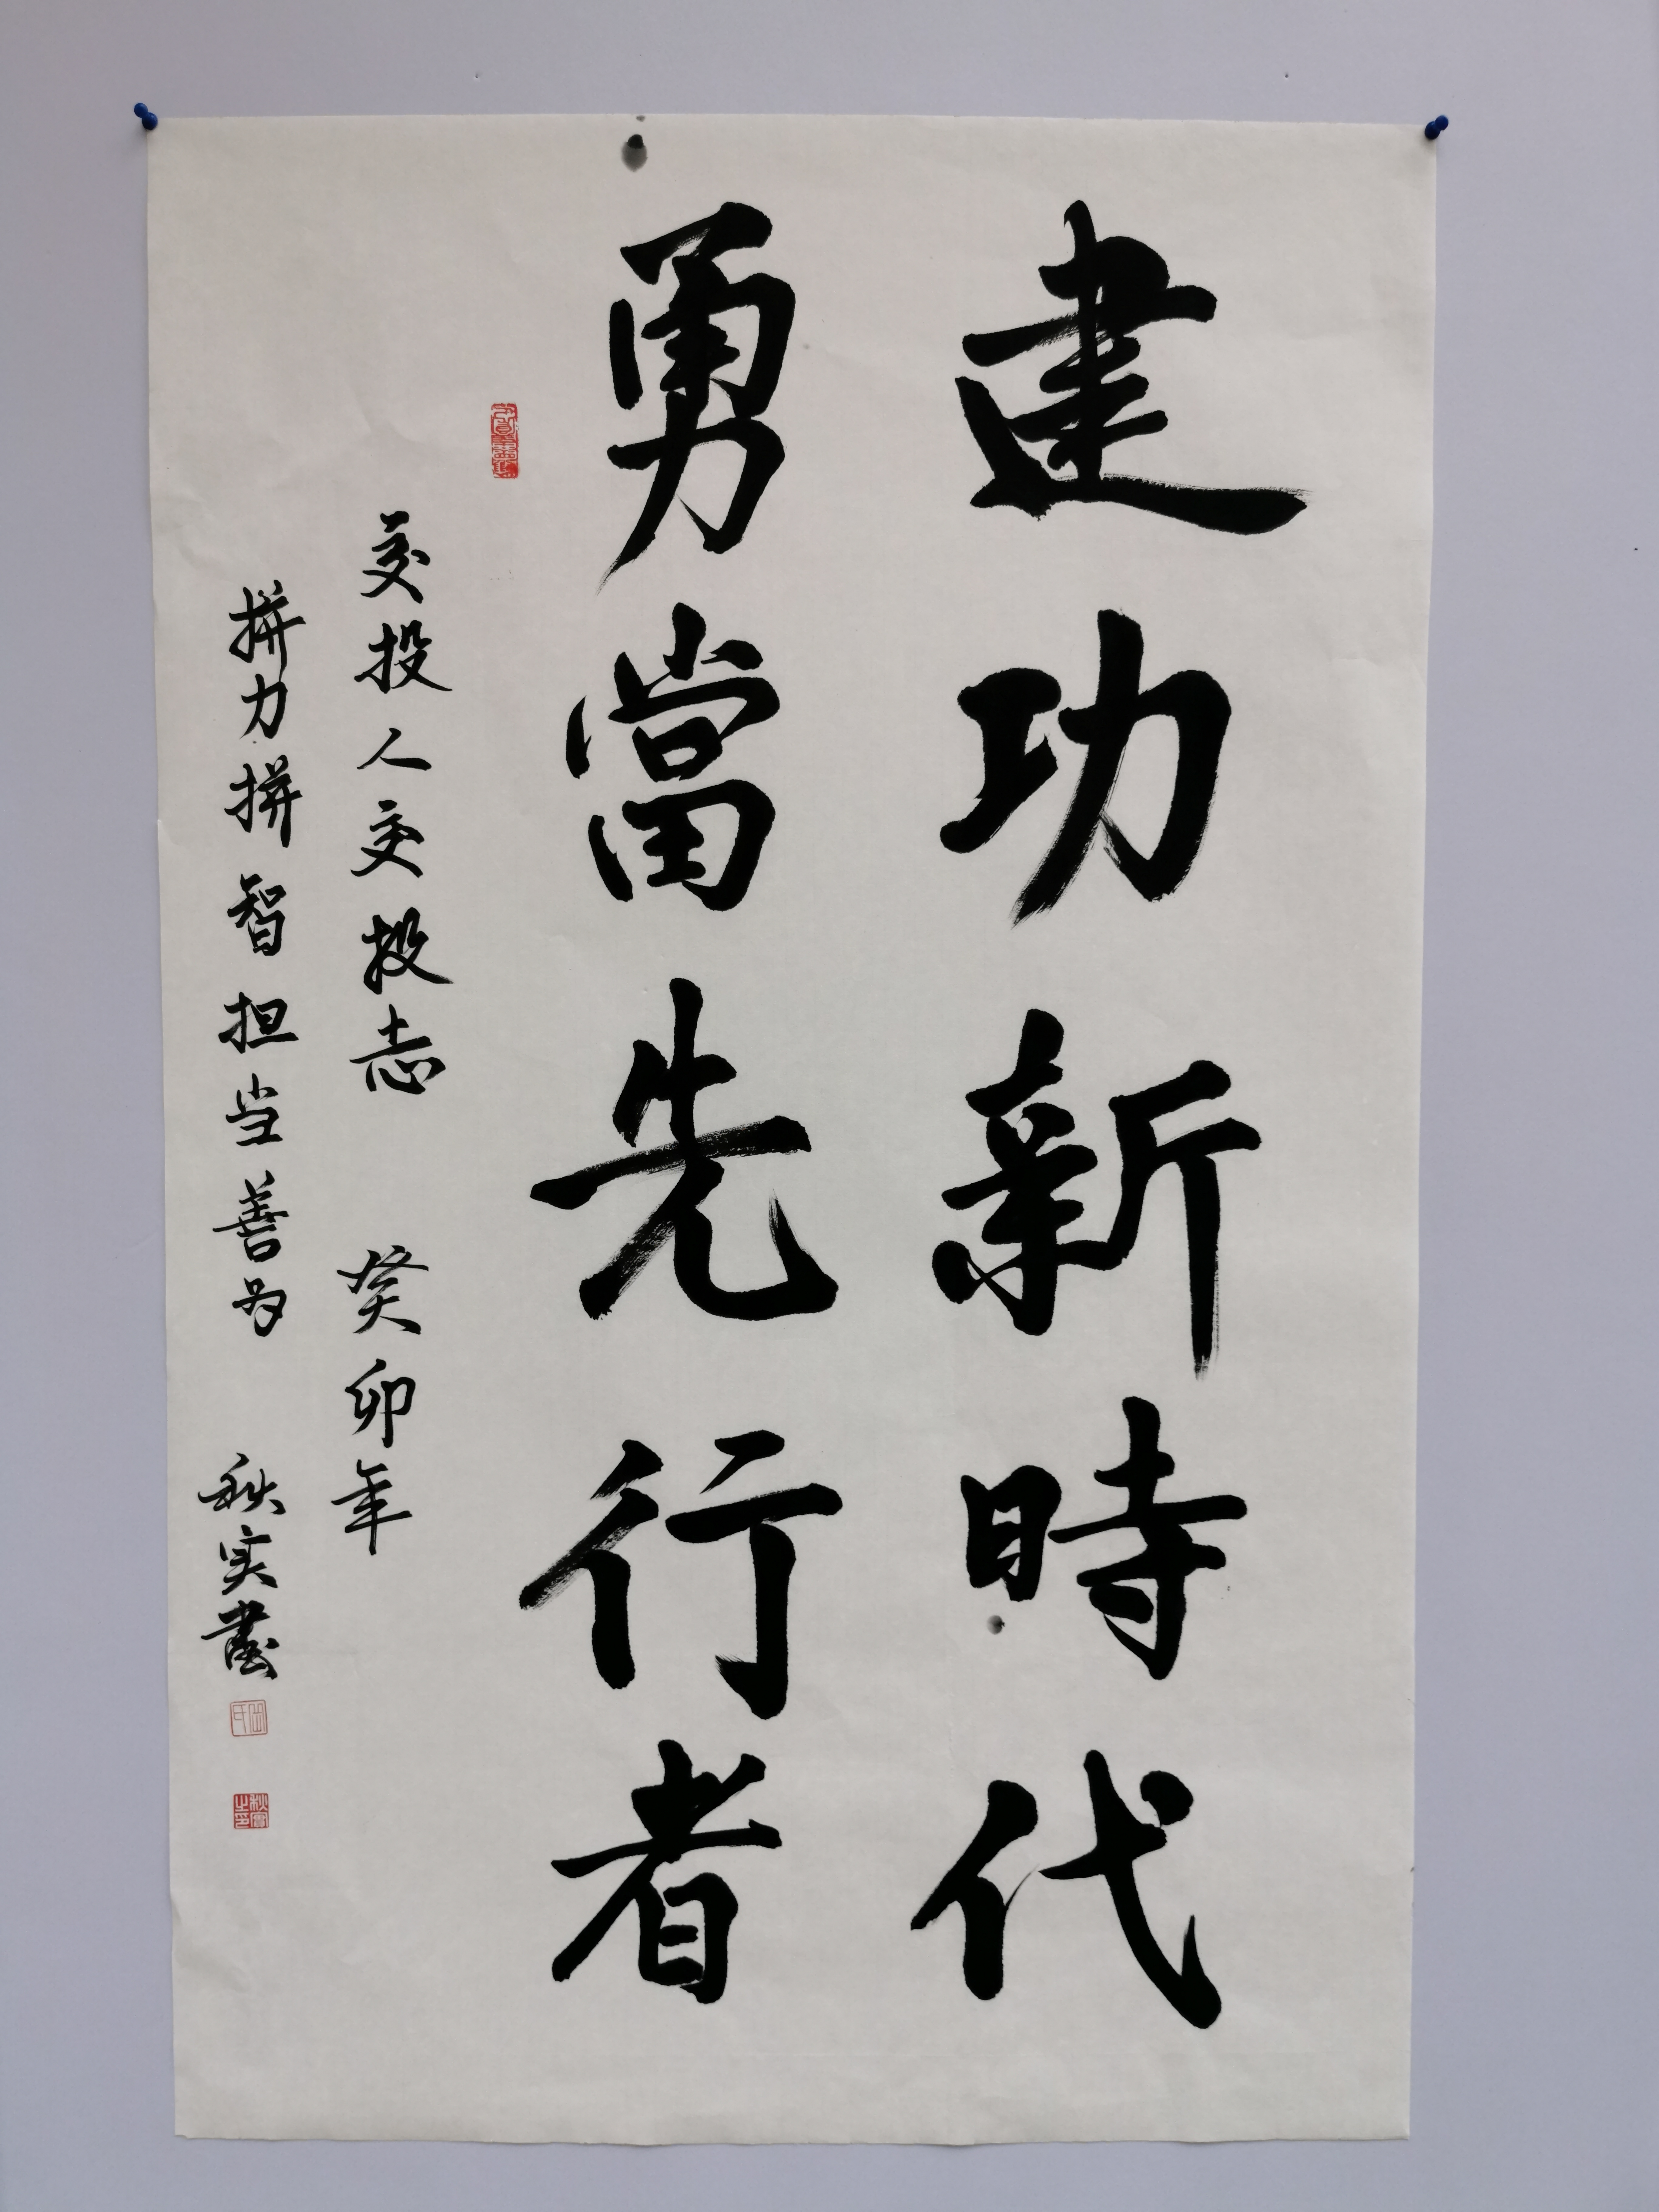 建功新時代
勇當先行者
交投人交投志 癸卯年
拼力拼智担当善为 秋实書
秋實之印